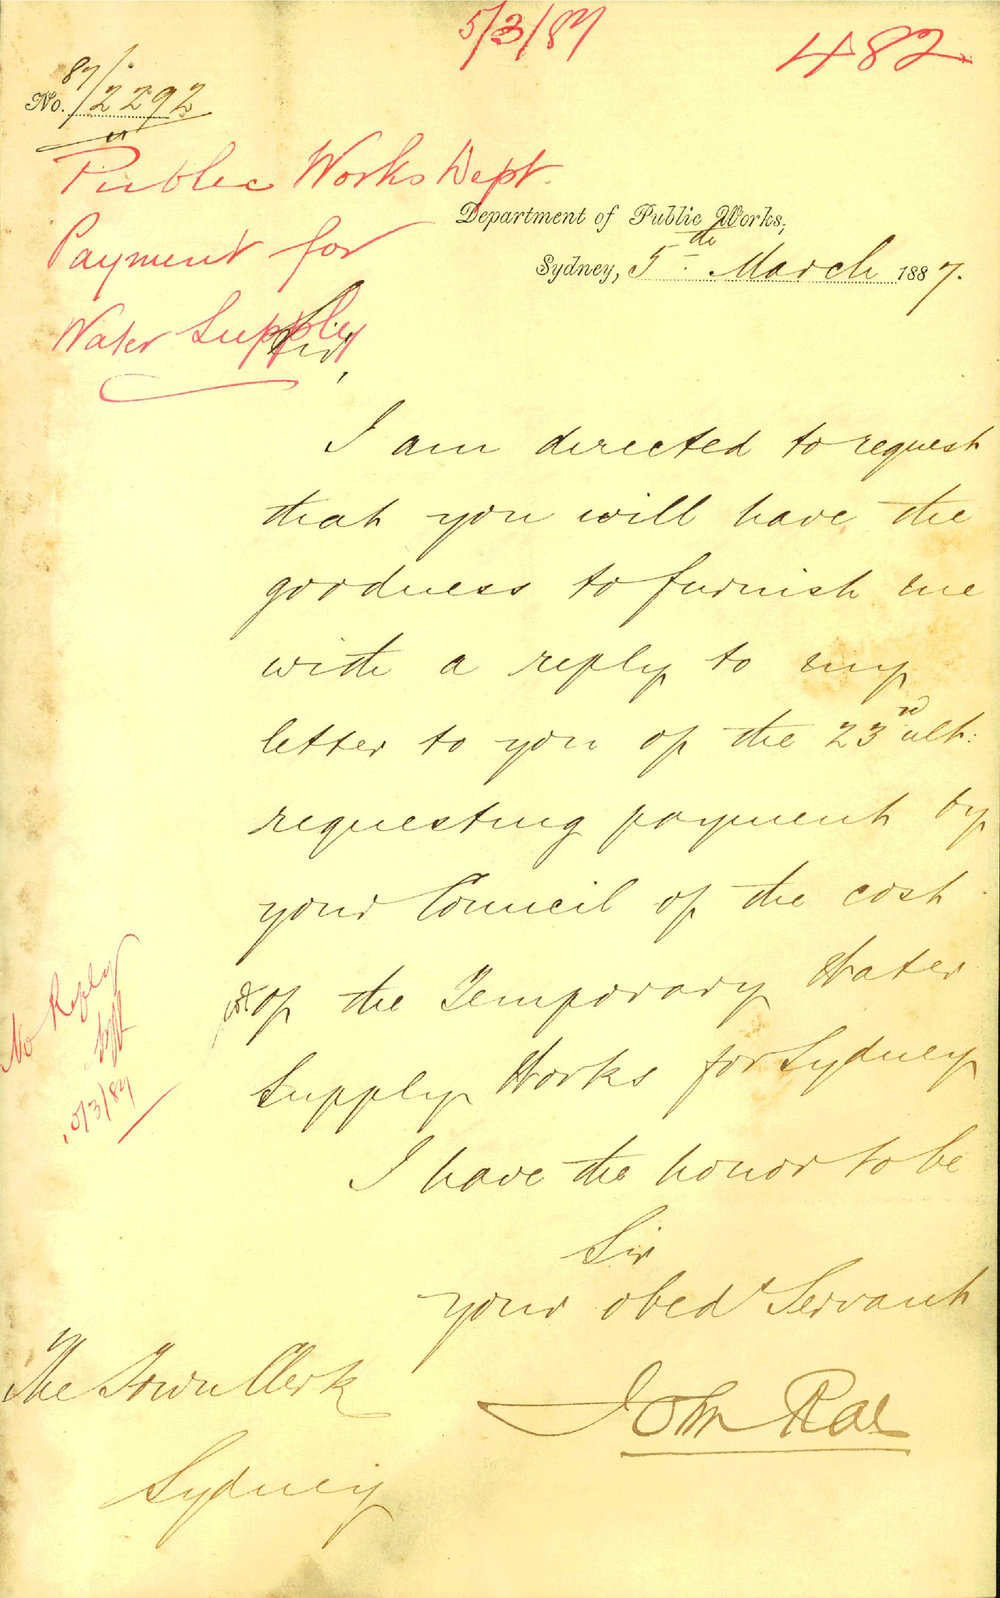 5/3/87
482
No. 87/2292
Public Works Dept.
Payment for
Water Supply
Department of Public Works,
Sydney, 5th March 1887.
Sir,
I am directed to request
that you will have the
goodness to furnish me
with a reply to my
letter to you of the 23rd ult:
requesting payment by
your Council of the cost
of the Temporary Water
Supply Works for Sydney
I have the honor to be
Sir
your obed Servant
John Rae
The Town Clerk
Sydney
No Reply
5/3/87